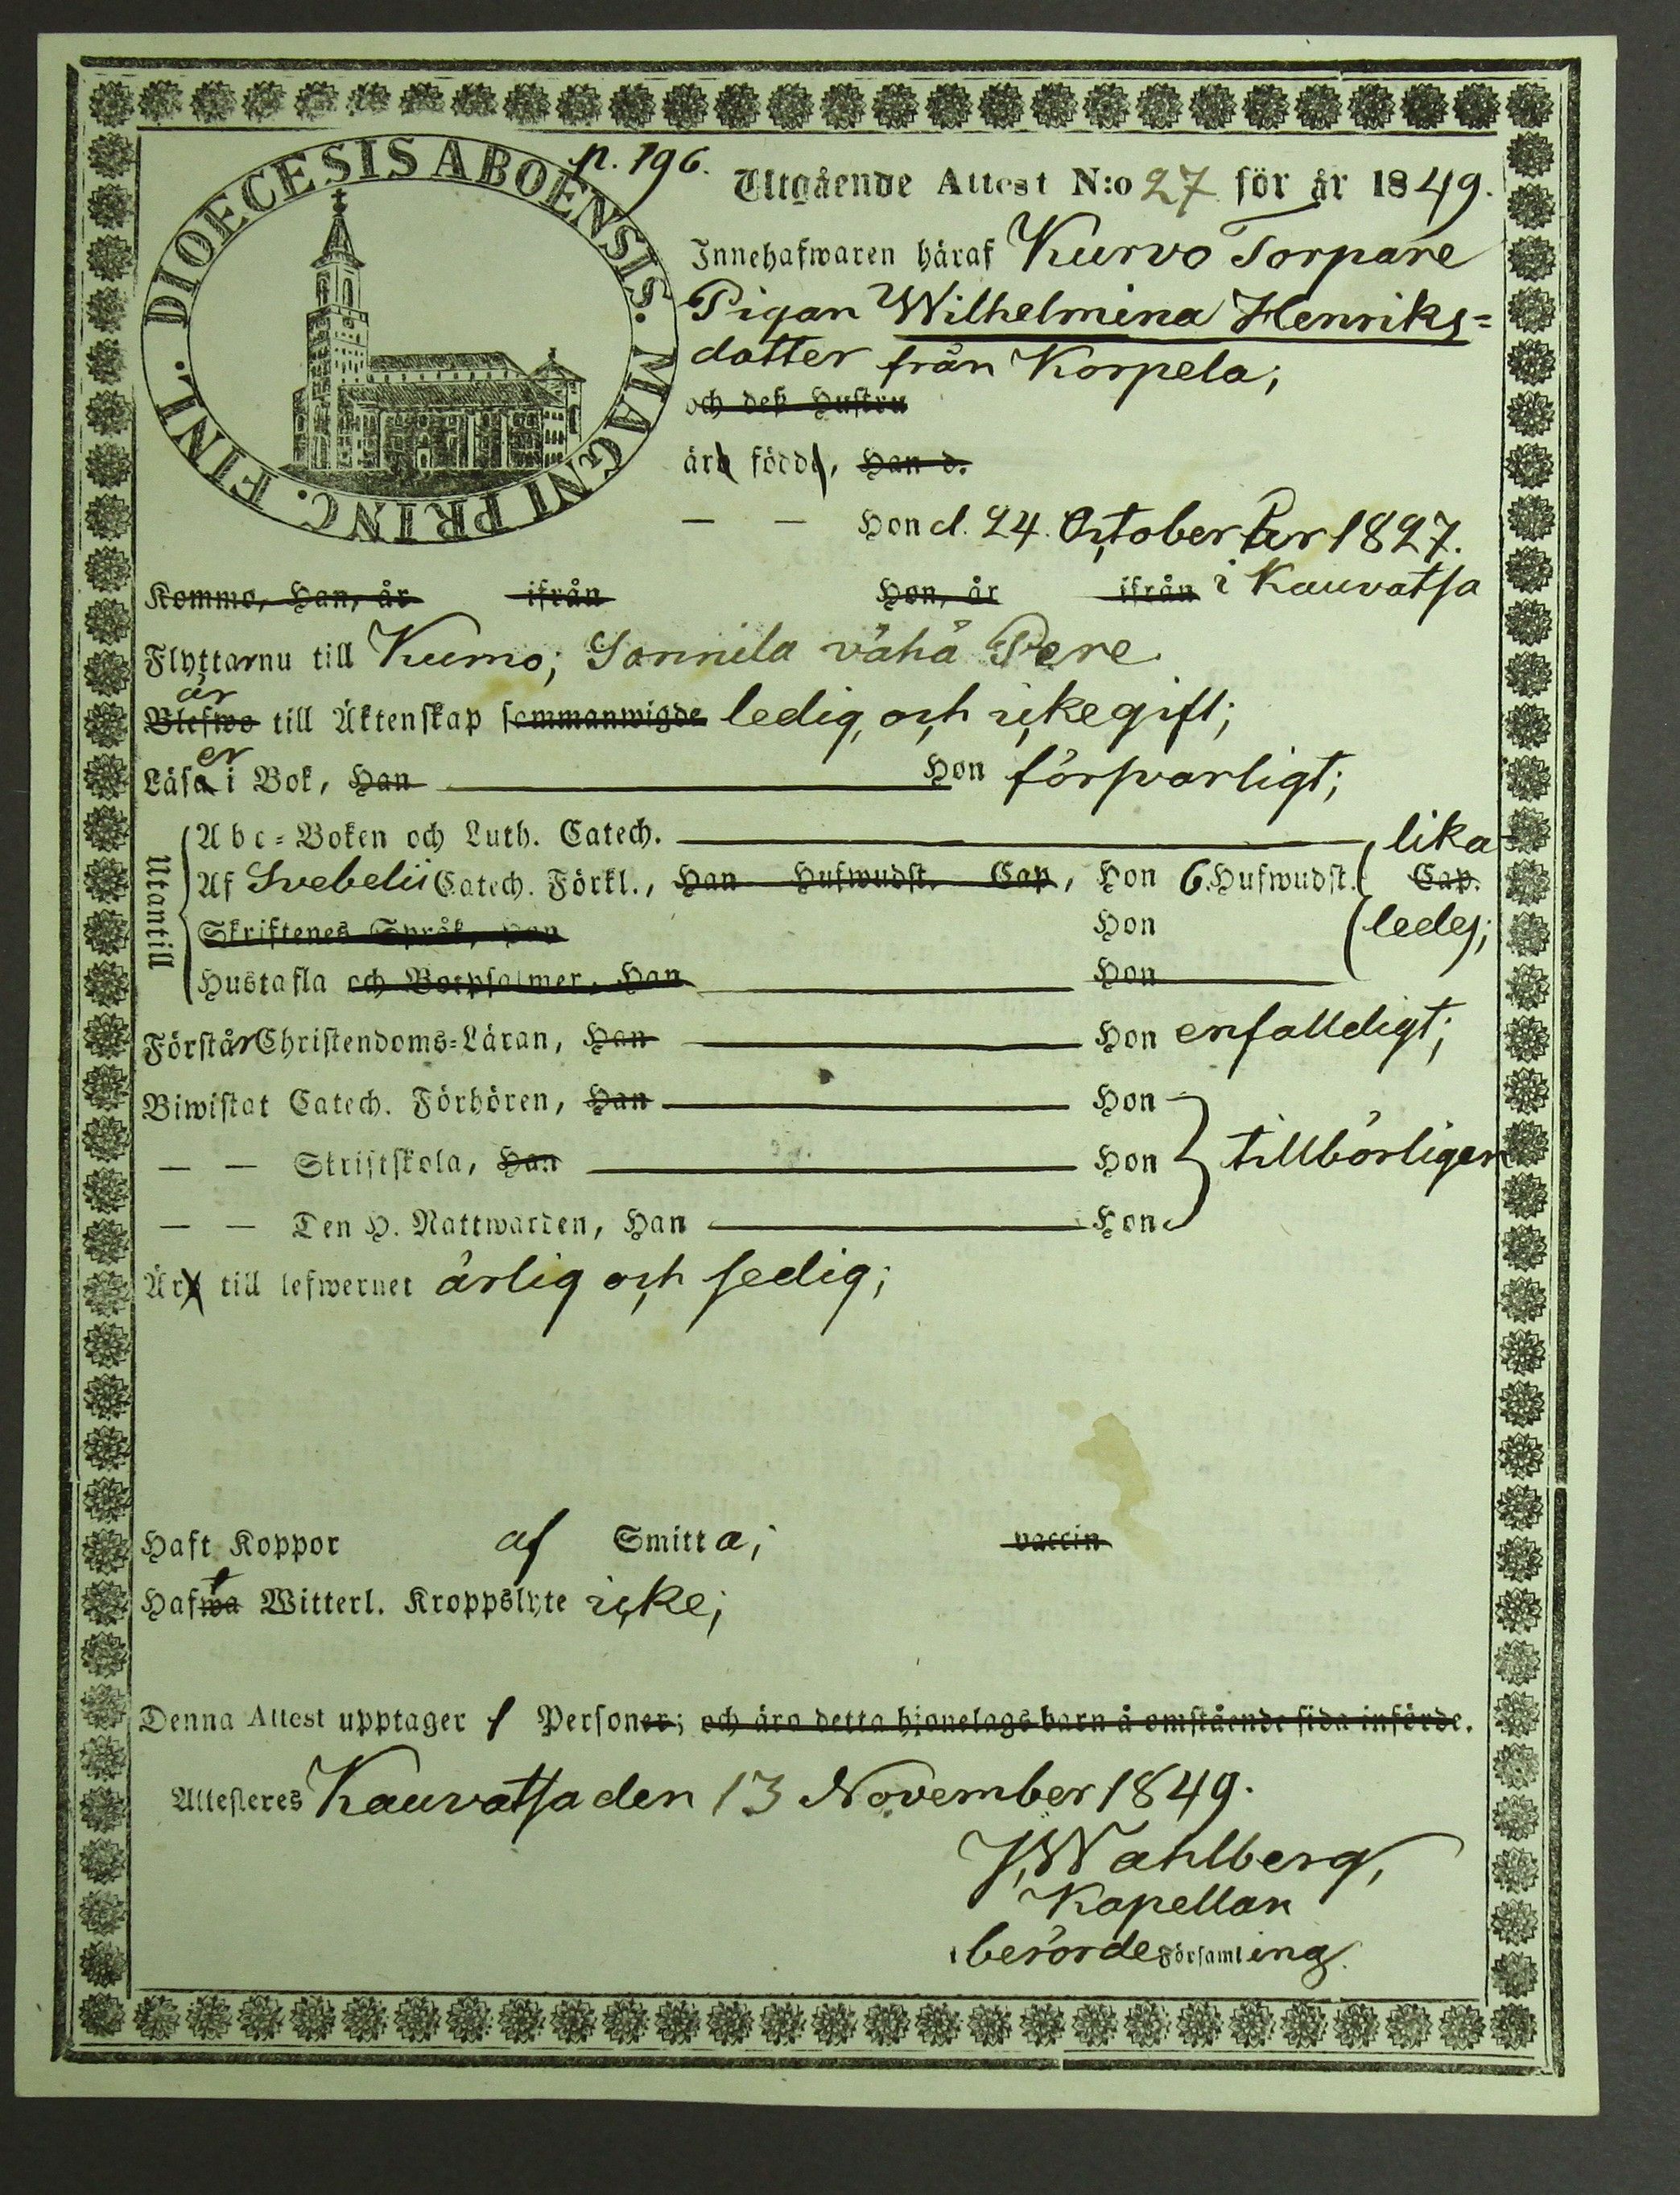 DIOECESIS ABOENSIS. MAGNI PRINC. FINL.
p. 196.
Utgående Attest N:o 27 för år 1849.
Innehafwaren häraf Kurvo Torpare
Pigan Wilhelmina Henriks=
dotter från Korpela;
och deß Hustru
äro födde, Han d.
— — Hon d. 24. October år 1827.
Kommo, Han, år ifrån Hon, år ifrån i Kauvatsa
Flyttar nu till Kumo; Sonnila vähä Pere
är
Blefwo till Äktenskap sammanwigde ledig, och icke gift;
er
Läsa i Bok, Han Hon försvarligt;
Utantill
Abc=Boken och Luth. Catech. lika
Af Svebelii Catech. Förkl., Han Hufwudst. Cap, Hon 6. Hufwudst. Cap.
Skriftenes Språk, Han Hon ledes;
Hustafla och Botpsalmer, Han Hon
Förstår Christendoms=Läran, Han Hon enfalldigt;
Biwistat Catech. Förhören, Han Hon
— — Skriftskola, Han Hon tillbörligen
— — Den H. Nattwarden, Han Hon
Äro till lefwernet ärlig och sedig;
Haft Koppor af Smitta; vaccin
Hafwa Witterl. Kroppslyte icke;
Denna Attest upptager 1 Personer; och äro detta hjonelags barn å omstående sida införde.
Attesteres Kauvatsa den 13 November 1849.
J. Wahlberg,
Kapellan
i berörde Församling.